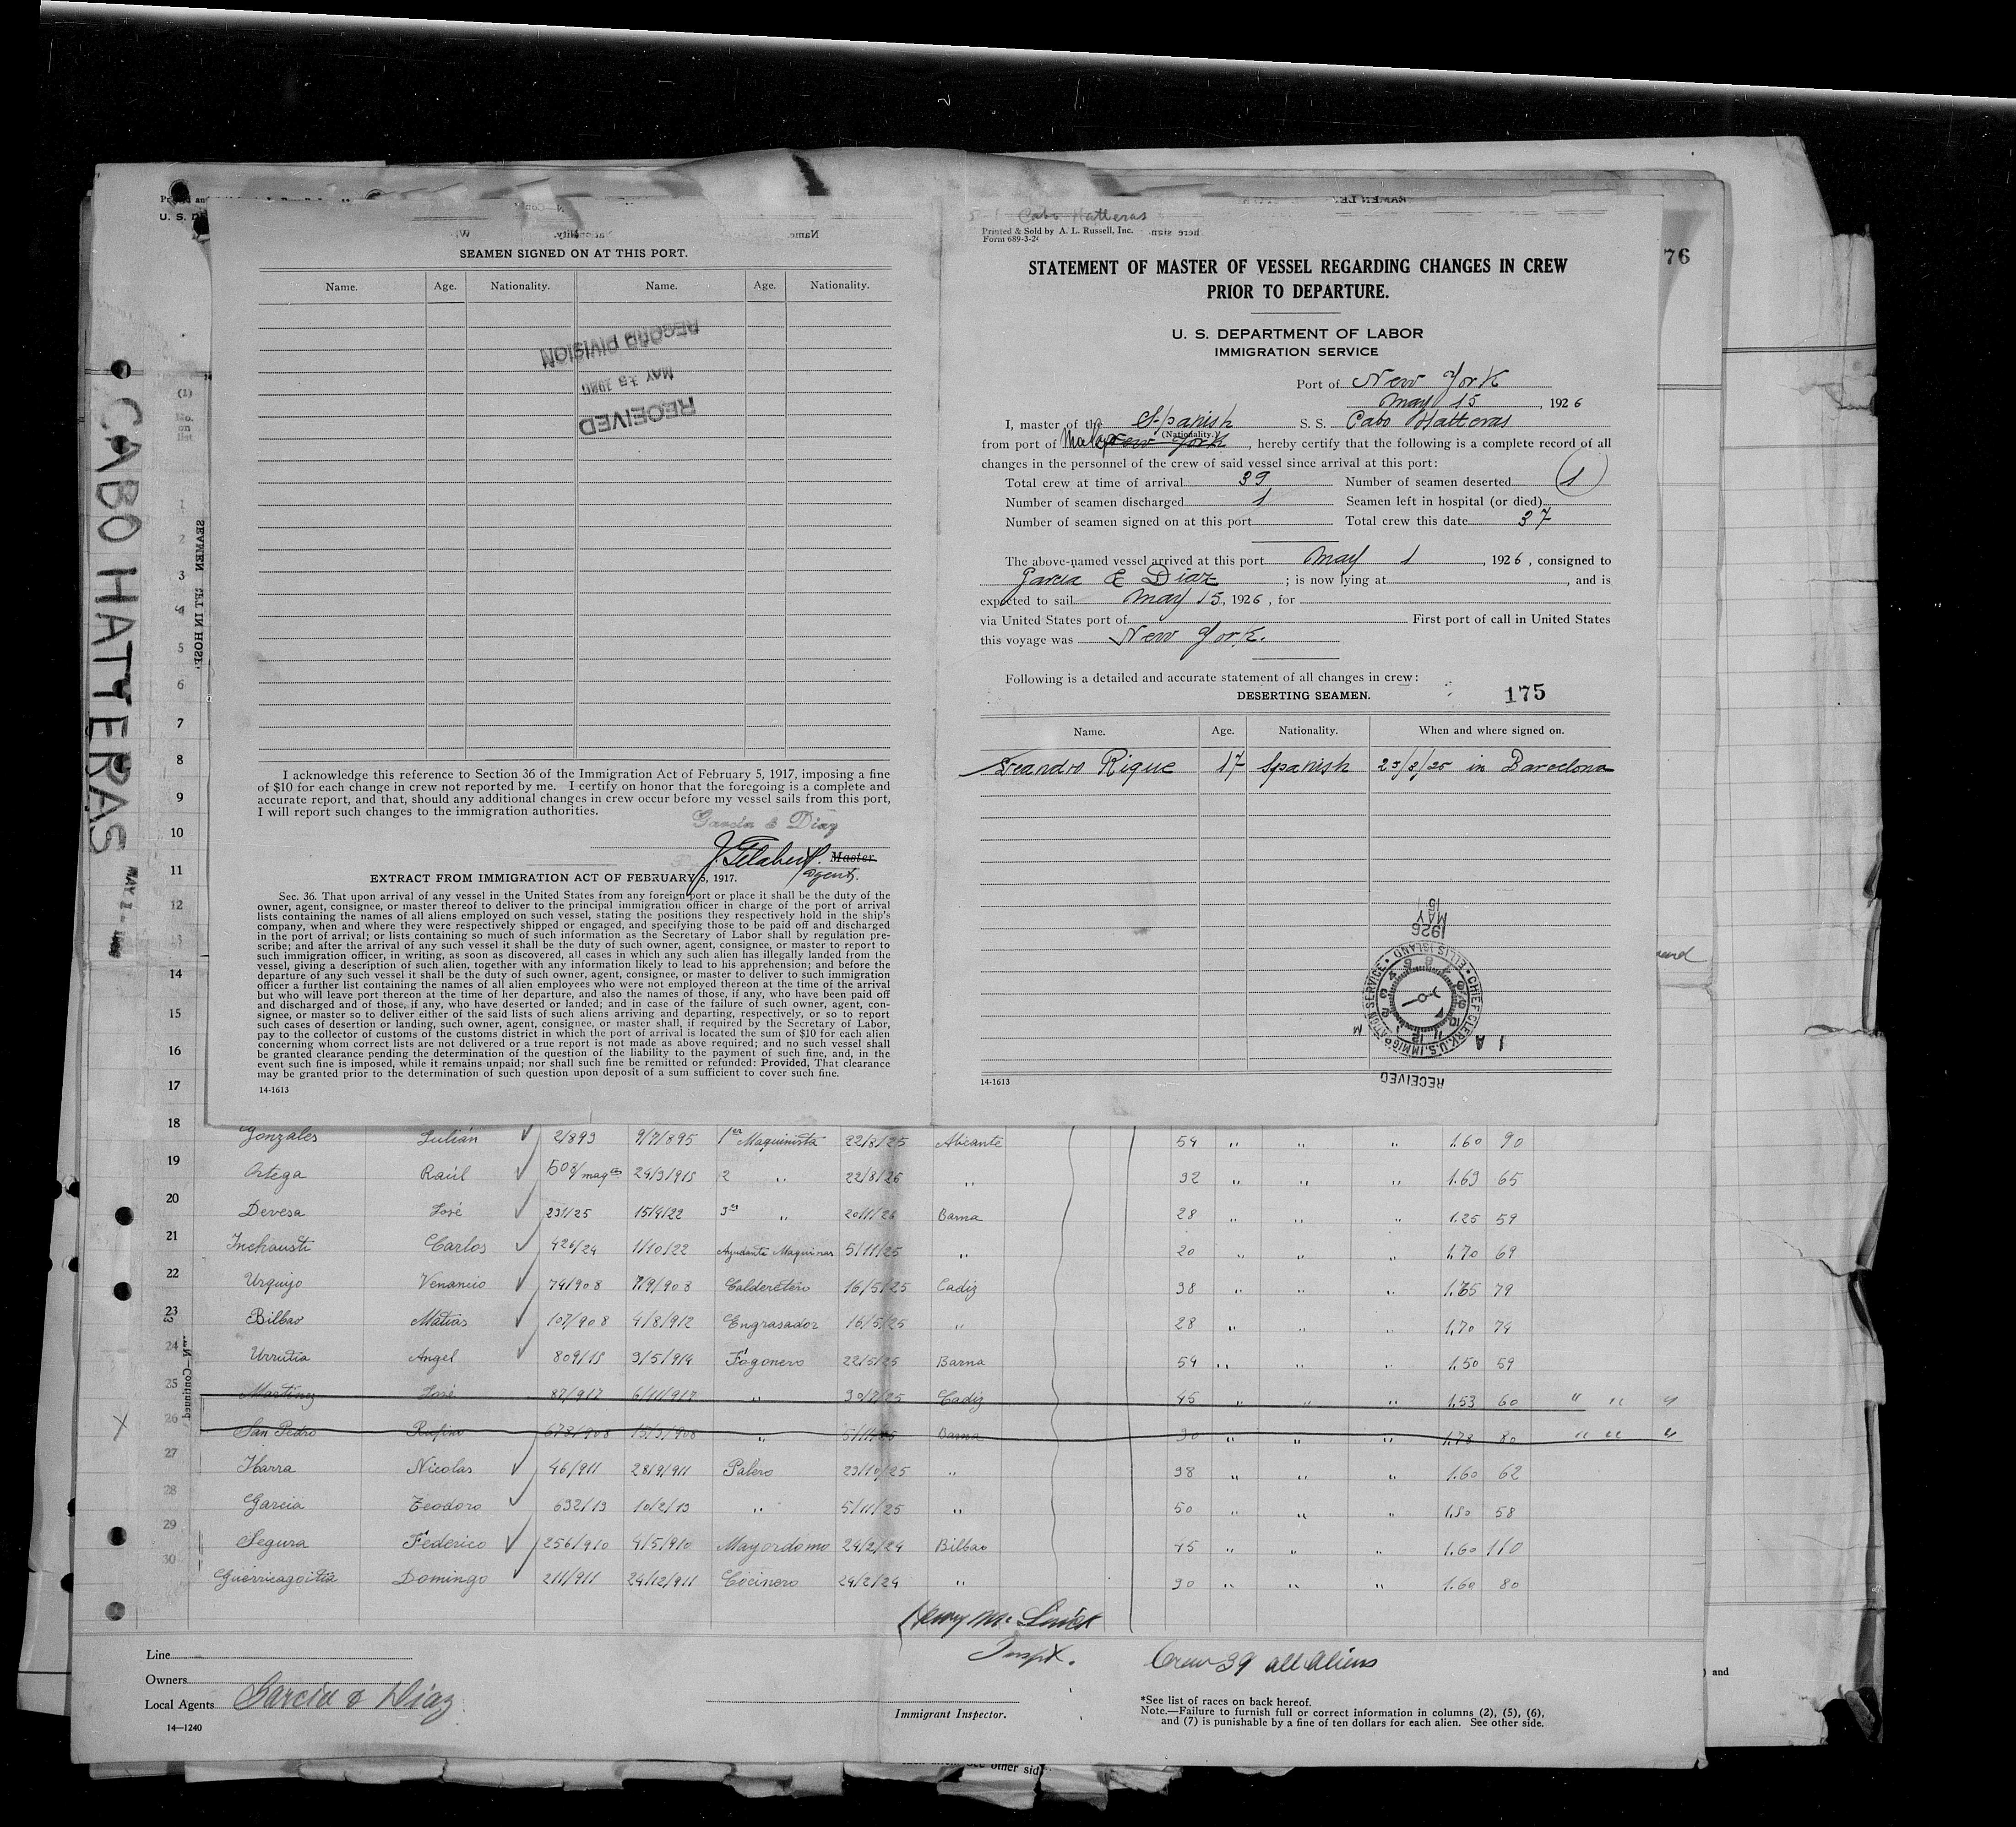 SEAMEN SIGNED ON AT THIS PORT.
Name. Age. Nationality. Name. Age. Nationality.
RECORD DIVISION
MAY 15 1926
RECEIVED
I acknowledge this reference to Section 36 of the Immigration Act of February 5, 1917, imposing a fine
of $10 for each change in crew not reported by me. I certify on honor that the foregoing is a complete and
accurate report, and that, should any additional changes in crew occur before my vessel sails from this port,
I will report such changes to the immigration authorities.
Garcia & Diaz
Master.
Agent.
EXTRACT FROM IMMIGRATION ACT OF FEBRUARY 5, 1917.
Sec. 36. That upon arrival of any vessel in the United States from any foreign port or place it shall be the duty of the
owner, agent, consignee, or master thereof to deliver to the principal immigration officer in charge of the port of arrival
lists containing the names of all aliens employed on such vessel, stating the positions they respectively hold in the ship's
company, when and where they were respectively shipped or engaged, and specifying those to be paid off and discharged
in the port of arrival; or lists containing so much of such information as the Secretary of Labor shall by regulation pre-
scribe; and after the arrival of any such vessel it shall be the duty of such owner, agent, consignee, or master to report to
such immigration officer, in writing, as soon as discovered, all cases in which any such alien has illegally landed from the
vessel, giving a description of such alien, together with any information likely to lead to his apprehension; and before the
departure of any such vessel it shall be the duty of such owner, agent, consignee, or master to deliver to such immigration
officer a further list containing the names of all alien employees who were not employed thereon at the time of the arrival
but who will leave port thereon at the time of her departure, and also the names of those, if any, who have been paid off
and discharged and of those, if any, who have deserted or landed; and in case of the failure of such owner, agent, con-
signee, or master so to deliver either of the said lists of such aliens arriving and departing, respectively, or so to report
such cases of desertion or landing, such owner, agent, consignee, or master shall, if required by the Secretary of Labor,
pay to the collector of customs of the customs district in which the port of arrival is located the sum of $10 for each alien
concerning whom correct lists are not delivered or a true report is not made as above required; and no such vessel shall
be granted clearance pending the determination of the question of the liability to the payment of such fine, and, in the
event such fine is imposed, while it remains unpaid; nor shall such fine be remitted or refunded: Provided, That clearance
may be granted prior to the determination of such question upon deposit of a sum sufficient to cover such fine.
14-1613
Cabo Hatteras
Printed & Sold by A. L. Russell, Inc.
Form 689-3-24
76
STATEMENT OF MASTER OF VESSEL REGARDING CHANGES IN CREW
PRIOR TO DEPARTURE.
U. S. DEPARTMENT OF LABOR
IMMIGRATION SERVICE
Port of New York
May 15, 1926
I, master of the Spanish S. S. Cabo Hatteras
(Nationality.)
from port of New York, hereby certify that the following is a complete record of all
changes in the personnel of the crew of said vessel since arrival at this port:
Total crew at time of arrival 39 Number of seamen deserted 1
Number of seamen discharged 1 Seamen left in hospital (or died)
Number of seamen signed on at this port Total crew this date 37
The above-named vessel arrived at this port May 1, 1926, consigned to
Garcia & Diaz; is now lying at , and is
expected to sail May 15, 1926, for
via United States port of First port of call in United States
this voyage was New York.
Following is a detailed and accurate statement of all changes in crew:
DESERTING SEAMEN. 175
Name. Age. Nationality. When and where signed on.
Leandro Rique 17 Spanish in Barcelona
1926
MAY
15
CHIEF CLERK, U.S. IMMIGRATION SERVICE • ELLIS ISLAND •
RECEIVED
14-1613
CABO HATTERAS MAY 1
(1)
No.
on
list
1
2
3
4
5
6
7
8
9
10
11
12
13
14
15
16
17
18 Gonzales Julián 2/893 9/7/895 1er Maquinista 22/8/25 Alicante 54 " " " 1.60 90
19 Ortega Raúl 24/3/915 2 " 22/8/25 " 32 " " " 1.63 65
20 Devesa José 231/25 15/4/22 3er " Barna 28 " " " 1.25 59
21 Inchausti Carlos 426/24 1/10/22 Ayudante Maquinas 5/11/25 " 20 " " " 1.70 69
22 Urquijo Venancio 74/908 7/9/908 Calderetero 16/5/25 Cadiz 38 " " " 1.65 79
23 Bilbao Matias 107/908 4/8/912 Engrasador 16/5/25 " 28 " " " 1.70 74
24 Urrutia Angel 809/15 3/5/914 Fogonero 22/5/25 Barna 54 " " " 1.50 59
25 Martinez José 87/917 6/11/917 " 30/7/25 Cadiz 45 " " " 1.53 60 " " "
26 San Pedro Rufino 678/908 15/3/908 " 5/11/25 Barna 30 " " " 1.78 80 " " "
27 Ibarra Nicolas 46/911 28/9/911 Palero 23/10/25 " 38 " " " 1.60 62
28 Garcia Teodoro 632/13 10/2/13 " 5/11/25 " 50 " " " 1.50 58
29 Segura Federico 256/910 4/5/910 Mayordomo 24/2/24 Bilbao 45 " " " 1.60 110
30 Guerricagoitia Domingo 211/911 24/12/911 Cocinero 24/2/24 " 30 " " " 1.60 80
Inspt.
Crew 39 all aliens
Line
Owners
Local Agents Garcia & Diaz
14—1240
Immigrant Inspector.
*See list of races on back hereof.
Note.—Failure to furnish full or correct information in columns (2), (5), (6),
and (7) is punishable by a fine of ten dollars for each alien. See other side.
) and